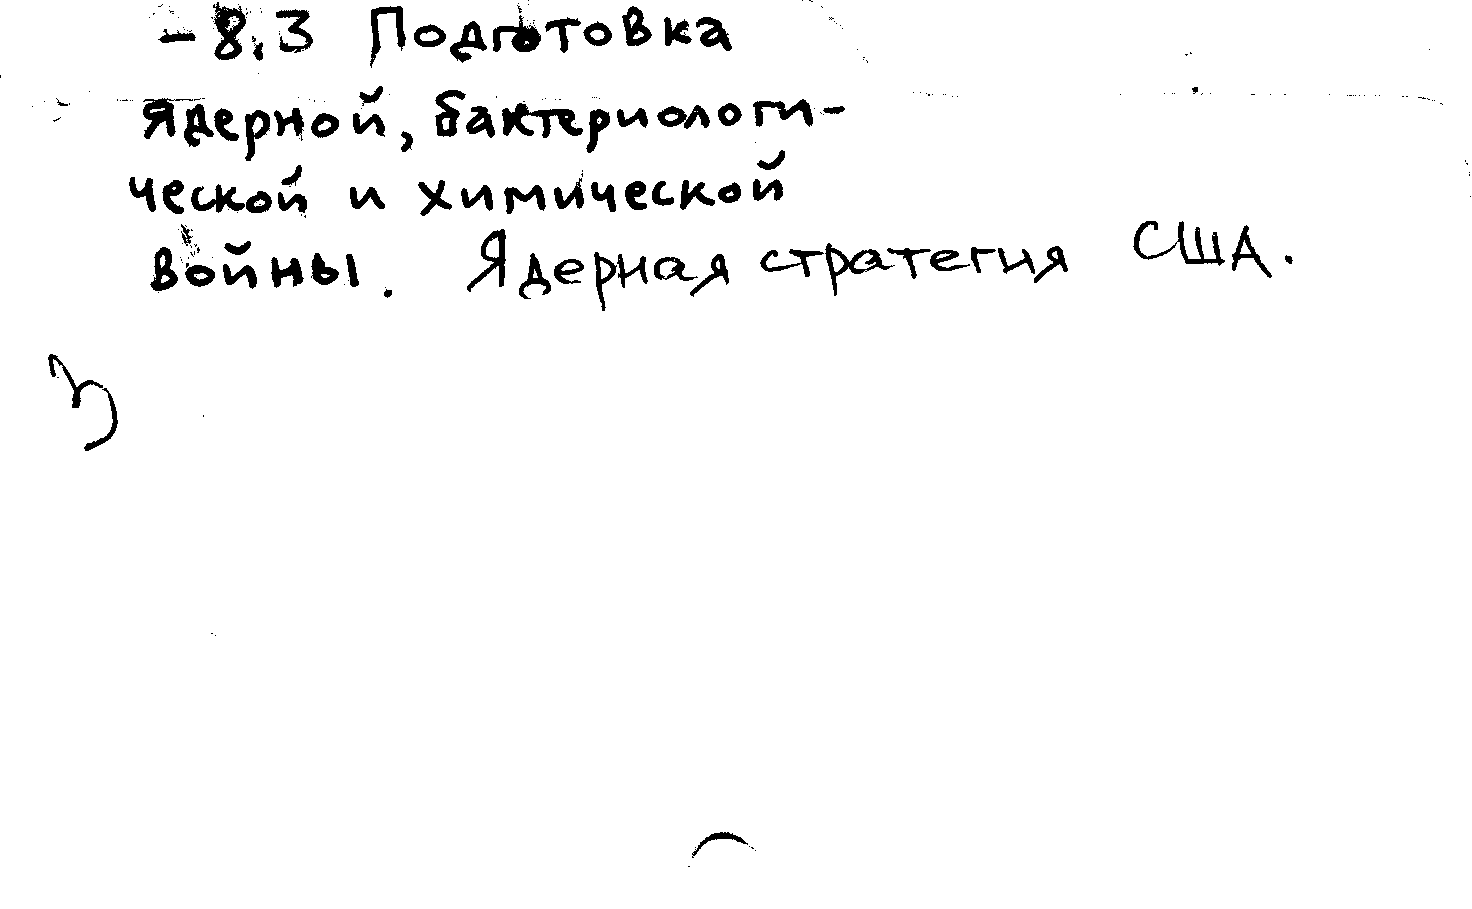 -8.3 Подготовка
ядерной, бактериологи-
ческой и химической
войны. Ядерная стратегия США.